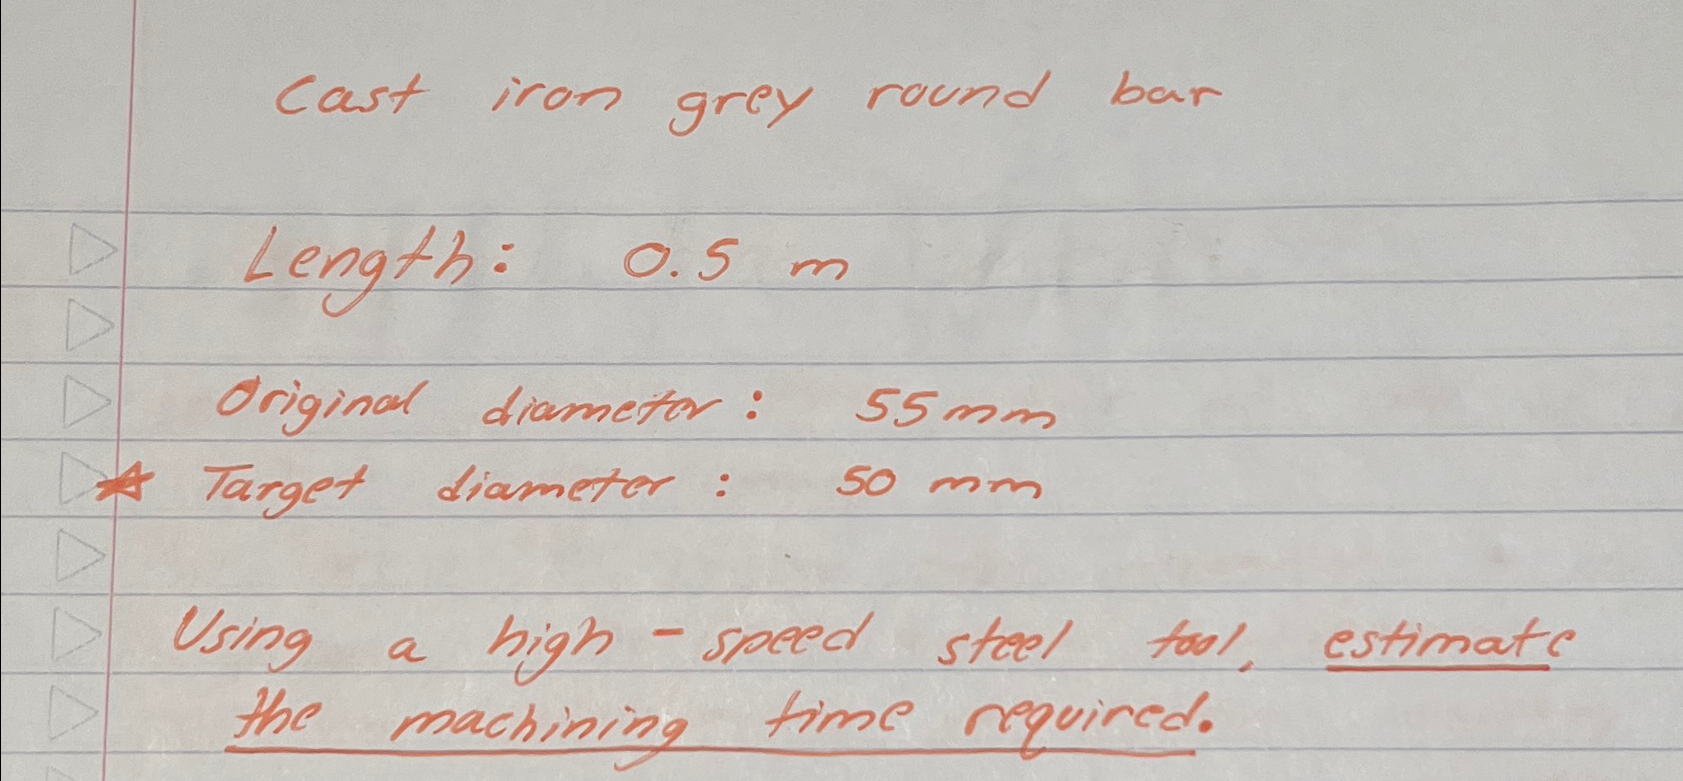 Cast iron grey round bar
Length: 0.5 m
Original diameter: 55mm
Target diameter: 50 mm
Using a high-speed steel tool, estimate
the machining time required.